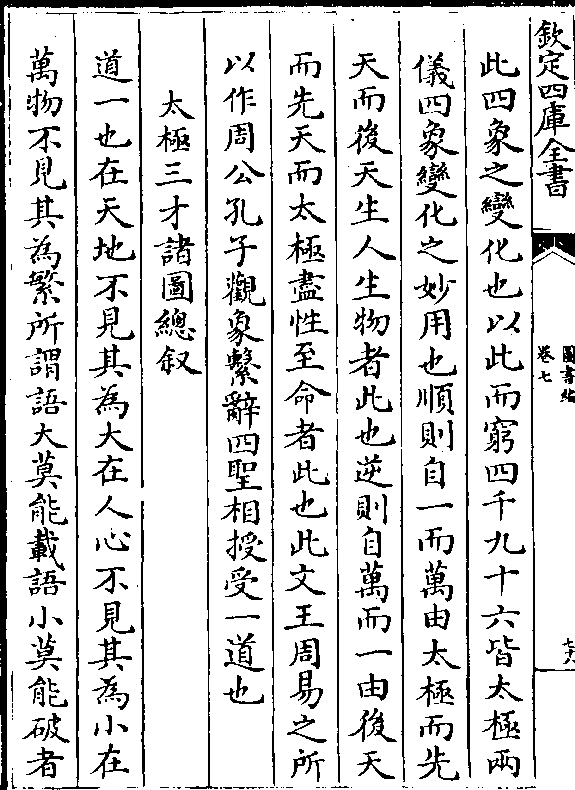 欽定四庫全書
圖書編
卷七
七六
此四象之變化也以此而窮四千九十六皆太極兩
儀四象變化之妙用也順則自一而萬由太極而先
天而後天生人生物者此也逆則自萬而一由後天
而先天而太極盡性至命者此也此文王周易之所
以作周公孔子觀象繫辭四聖相授受一道也
太極三才諸圖總叙
道一也在天地不見其為大在人心不見其為小在
萬物不見其為繁所謂語大莫能載語小莫能破者